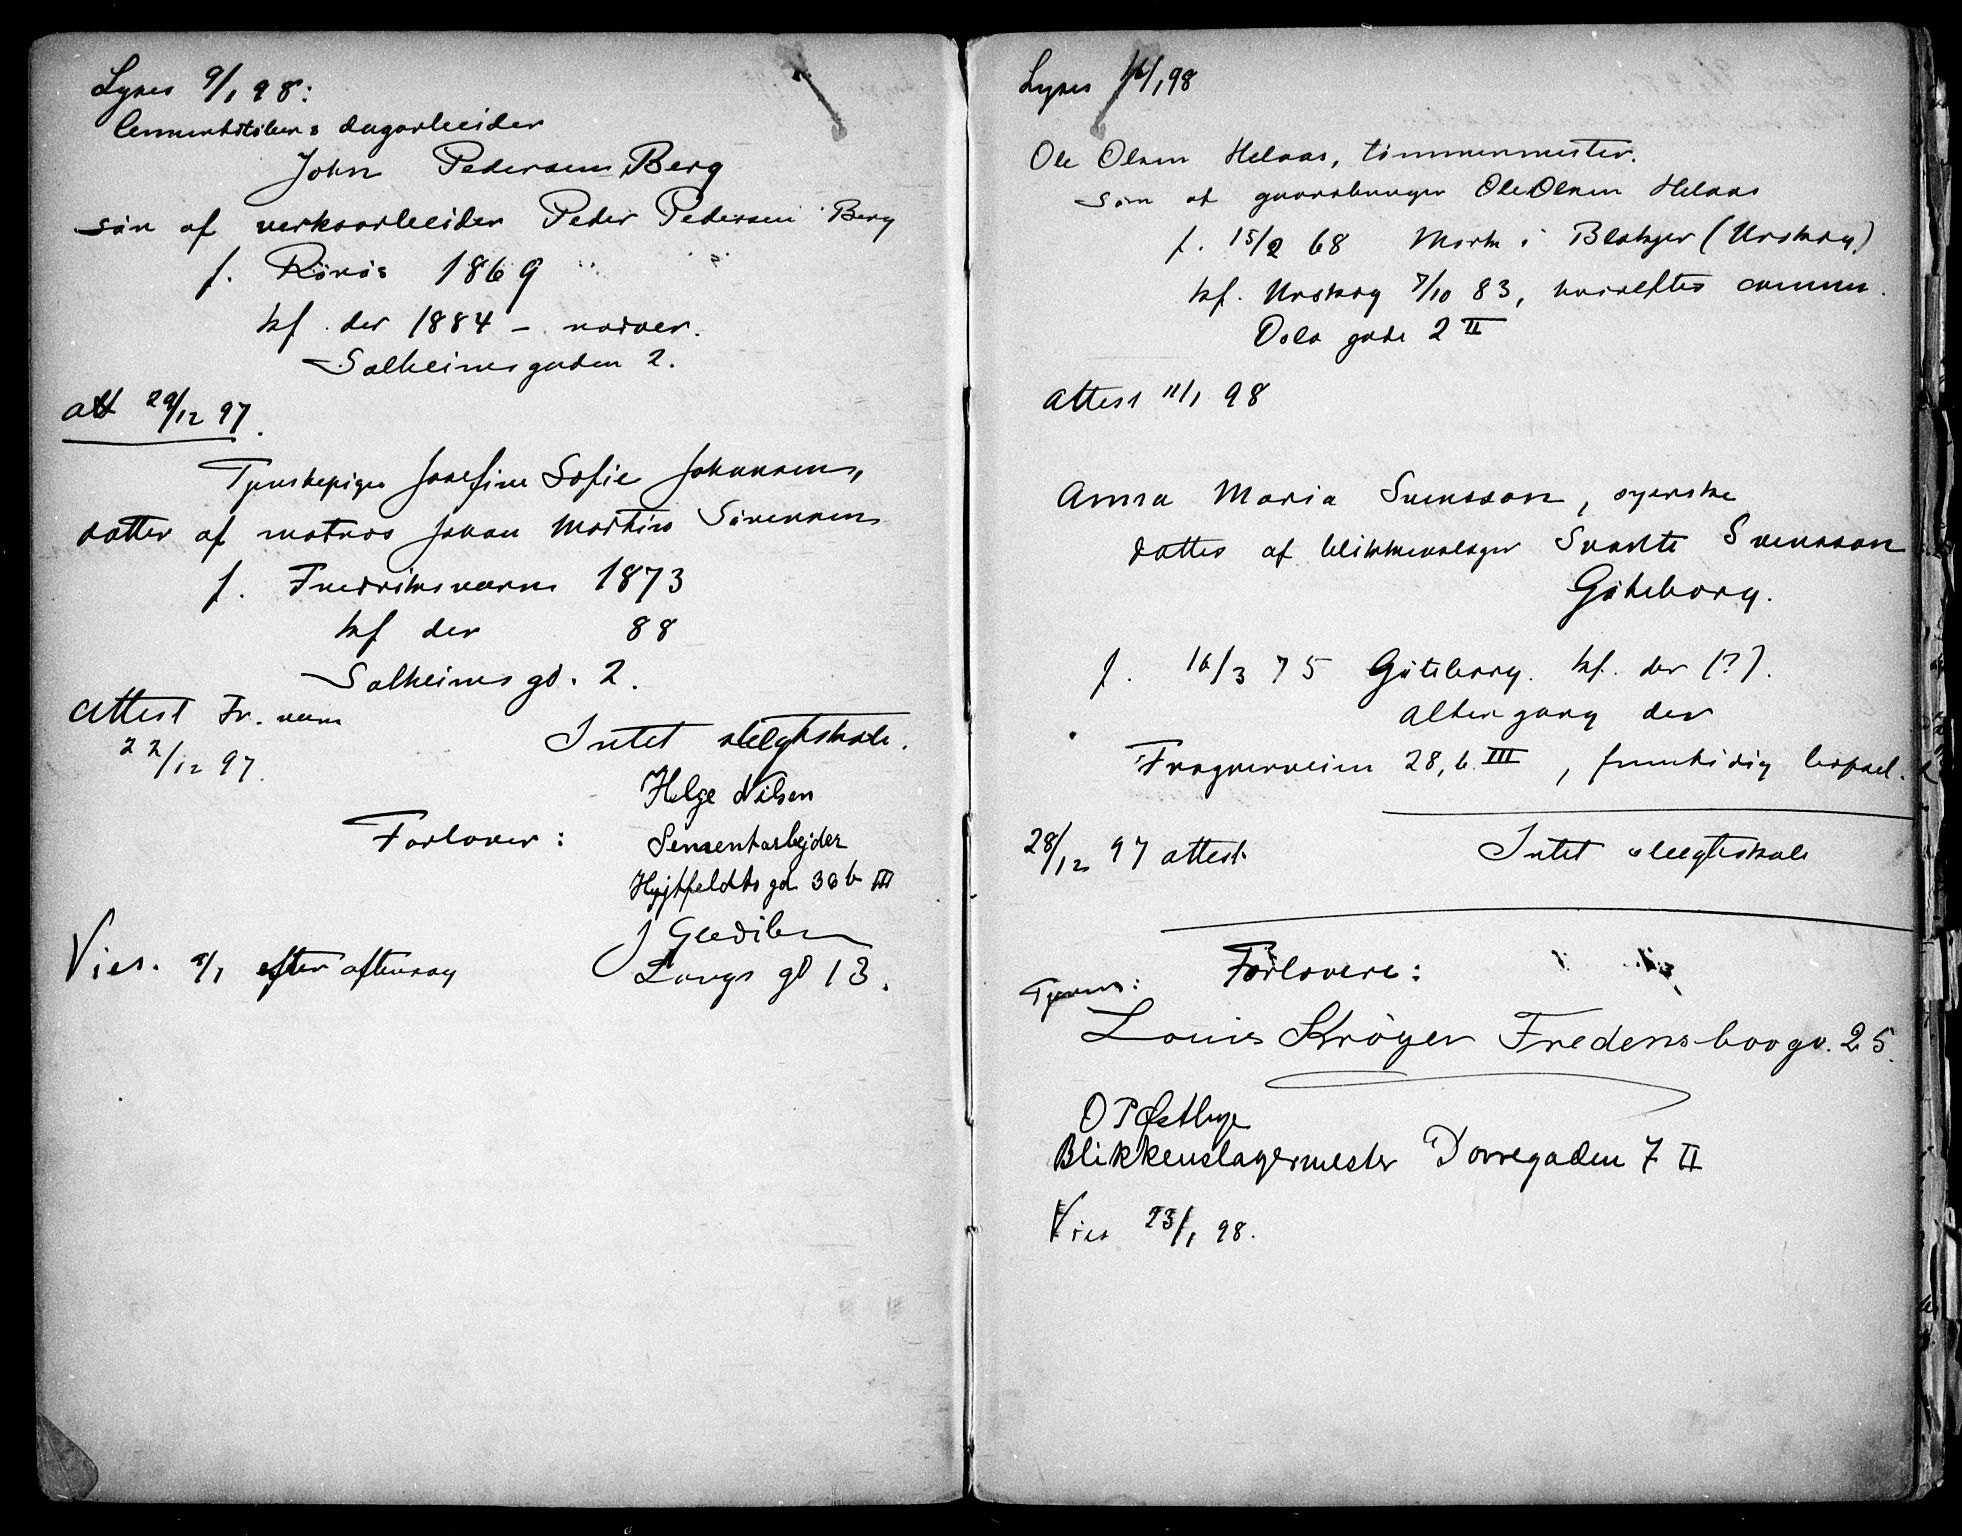 Lyses 9/1 98:
dagarbeider
John Pedersen Berg
sön af verksarbeider Peder Pedersen Berg
f. Röros 1869
kf. der 1884 –
Solheimsgaden 2.
att 29/12 97.
Tjenstepige Josefine Sofie Johannsen,
datter af matros Johan Martin Sörensen
f. Fredriksværn 1873
kf der 88
Solheimsgd. 2.
Attest Fr. værn
22/12 97.
Intet slegtskab.
Helge Nilsen
Forlover: Sementarbejder
Hyjtfeldts gd. 36 b III
Vies. 9/1 efter aftensag
Langs gd 13.
Lyses 16/1 98
Ole Olsen Helaas, tömmermester.
sön af gaardbruger Ole Olsen Helaas
f. 15/2 68 Mork i Blakjer (Urskog)
kf. Urskog 7/10 83, hvorefter commun.
Osla gade 2 II
Attest 11/1 98
Anna Maria Svensson, syerske
datter af blikkenslager Svante Svensson
Göteborg.
f. 16/3 75 Göteborg. kf. der (?).
Altergang der
Frognerveien 28, b. III, fremtidig bopæl.
28/12 97 attest. Intet slegtskab
Forlovere:
Louis Kröyer Fredensborgv. 25.
O P Østbye
Blikkenslagermester Dovregaden 7 II
Vies 23/1 98.